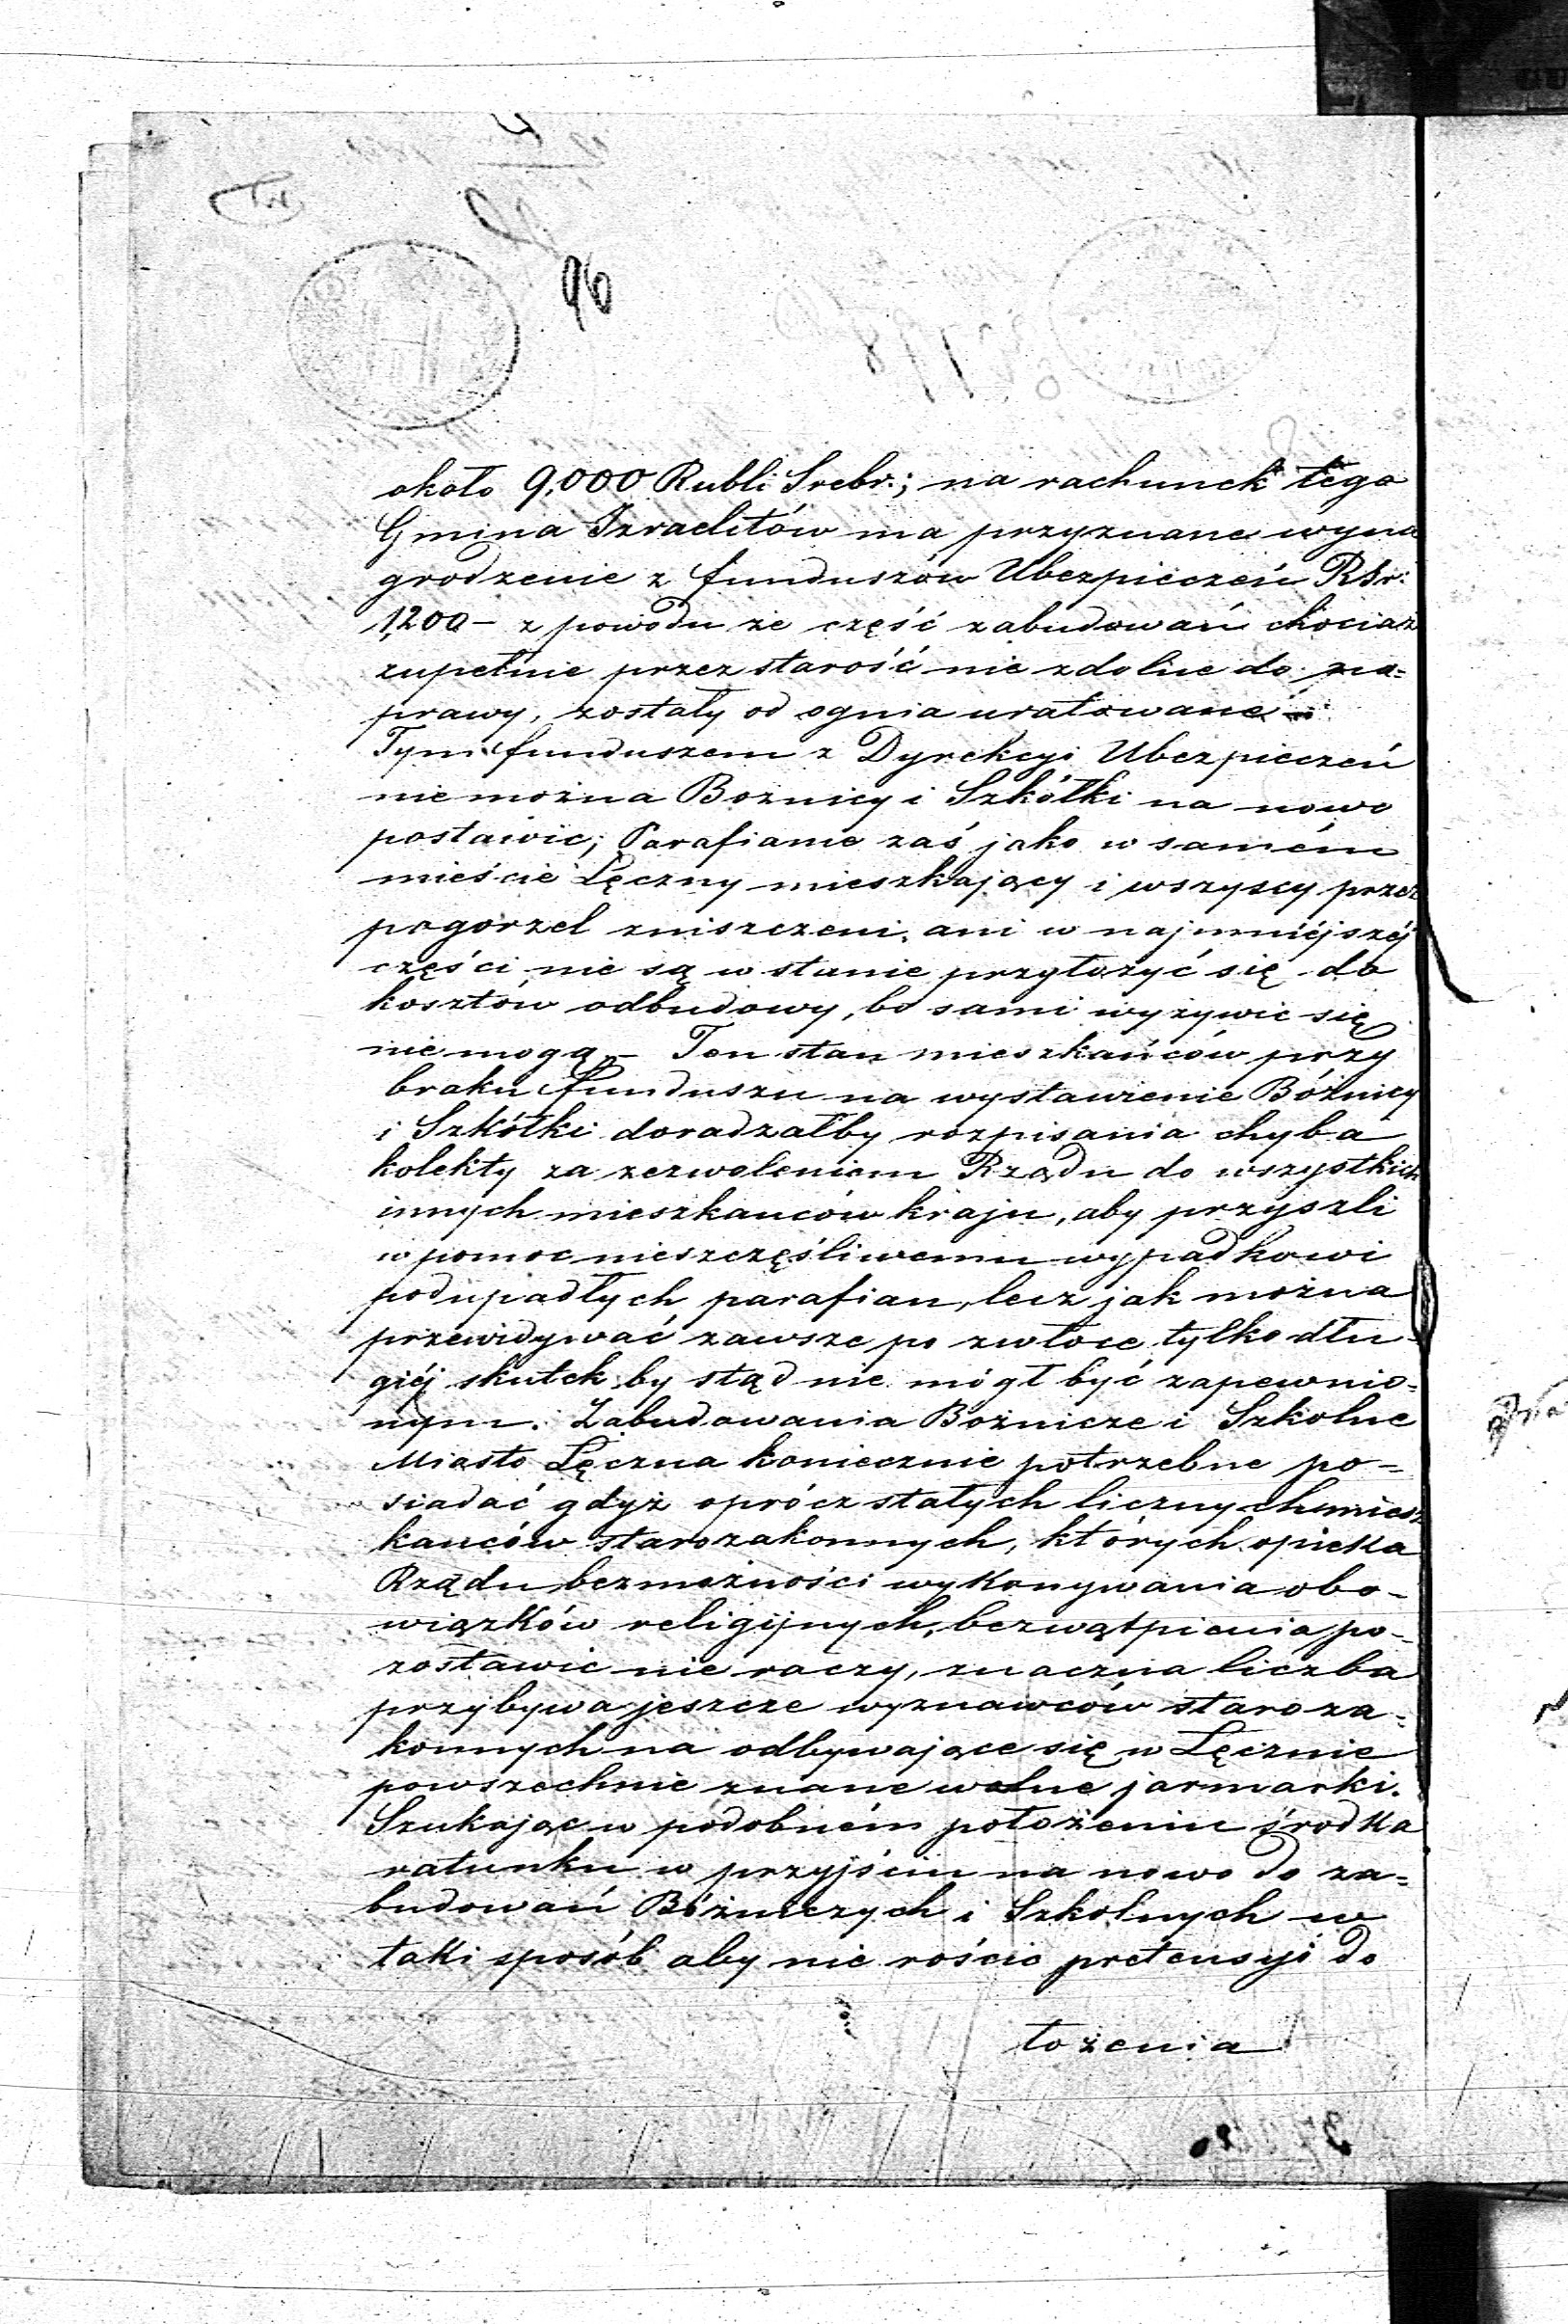 96
około 9,000 Rubli Srebr.; na rachunek tego
Gmina Izraelitów ma przyznane wyna
grodzenie z funduszów Ubezpieczeń Rsr:
1,200 – z powodu że część zabudowań chociaż
zupełnie przez starość nie zdolne do na=
prawy, zostały od ognia uratowane –
Tym funduszem z Dyrekcyi Ubezpieczeń
nie można Boznicy i Szkółki na nowo
postawic; Parafianie zaś jako w samém
mieście Łęczny mieszkający i wszyscy przez
pogorzel zniszczeni, ani w najmniéjszéj
części nie są w stanie przyłożyć się do
kosztów odbudowy, bo sami wyżywic się
nie mogą – Ten stan mieszkańców przy
braku funduszu na wystawienie Bóżnicy
i Szkółki doradzałby rozpisania chyba
kolekty za zezwoleniem Rządu do wszystkich
innych mieszkanców kraju, aby przyszli
w pomoc nieszczęśliwemu wypadkowi
podupadłych parafian, lecz jak można
przewidywać zawsze po zwłoce tylko dłu=
giéj skutek by stąd nie mógł być zapewnio=
nym. Zabudowania Bożnicze i Szkolne
Miasto Łęczna koniecznie potrzebne po=
siadać gdyż oprócz stałych licznych miesz
kanców starozakonnych, których opieka
Rządu bez możności wykonywania obo-
wiązków religijnych, bezwątpienia po-
zostawic nie raczy, znaczna liczba
przybywa jeszcze wyznawców staroza=
konnych na odbywające się w Łęcznie
powszechnie znane wolne jarmarki.
Szukając w podobném położeniu środka
ratunku w przyjściu na nowo do za=
budowań Bóżniczych i Szkolnych w
taki sposób aby nie rościc pretensyi do
łożenia